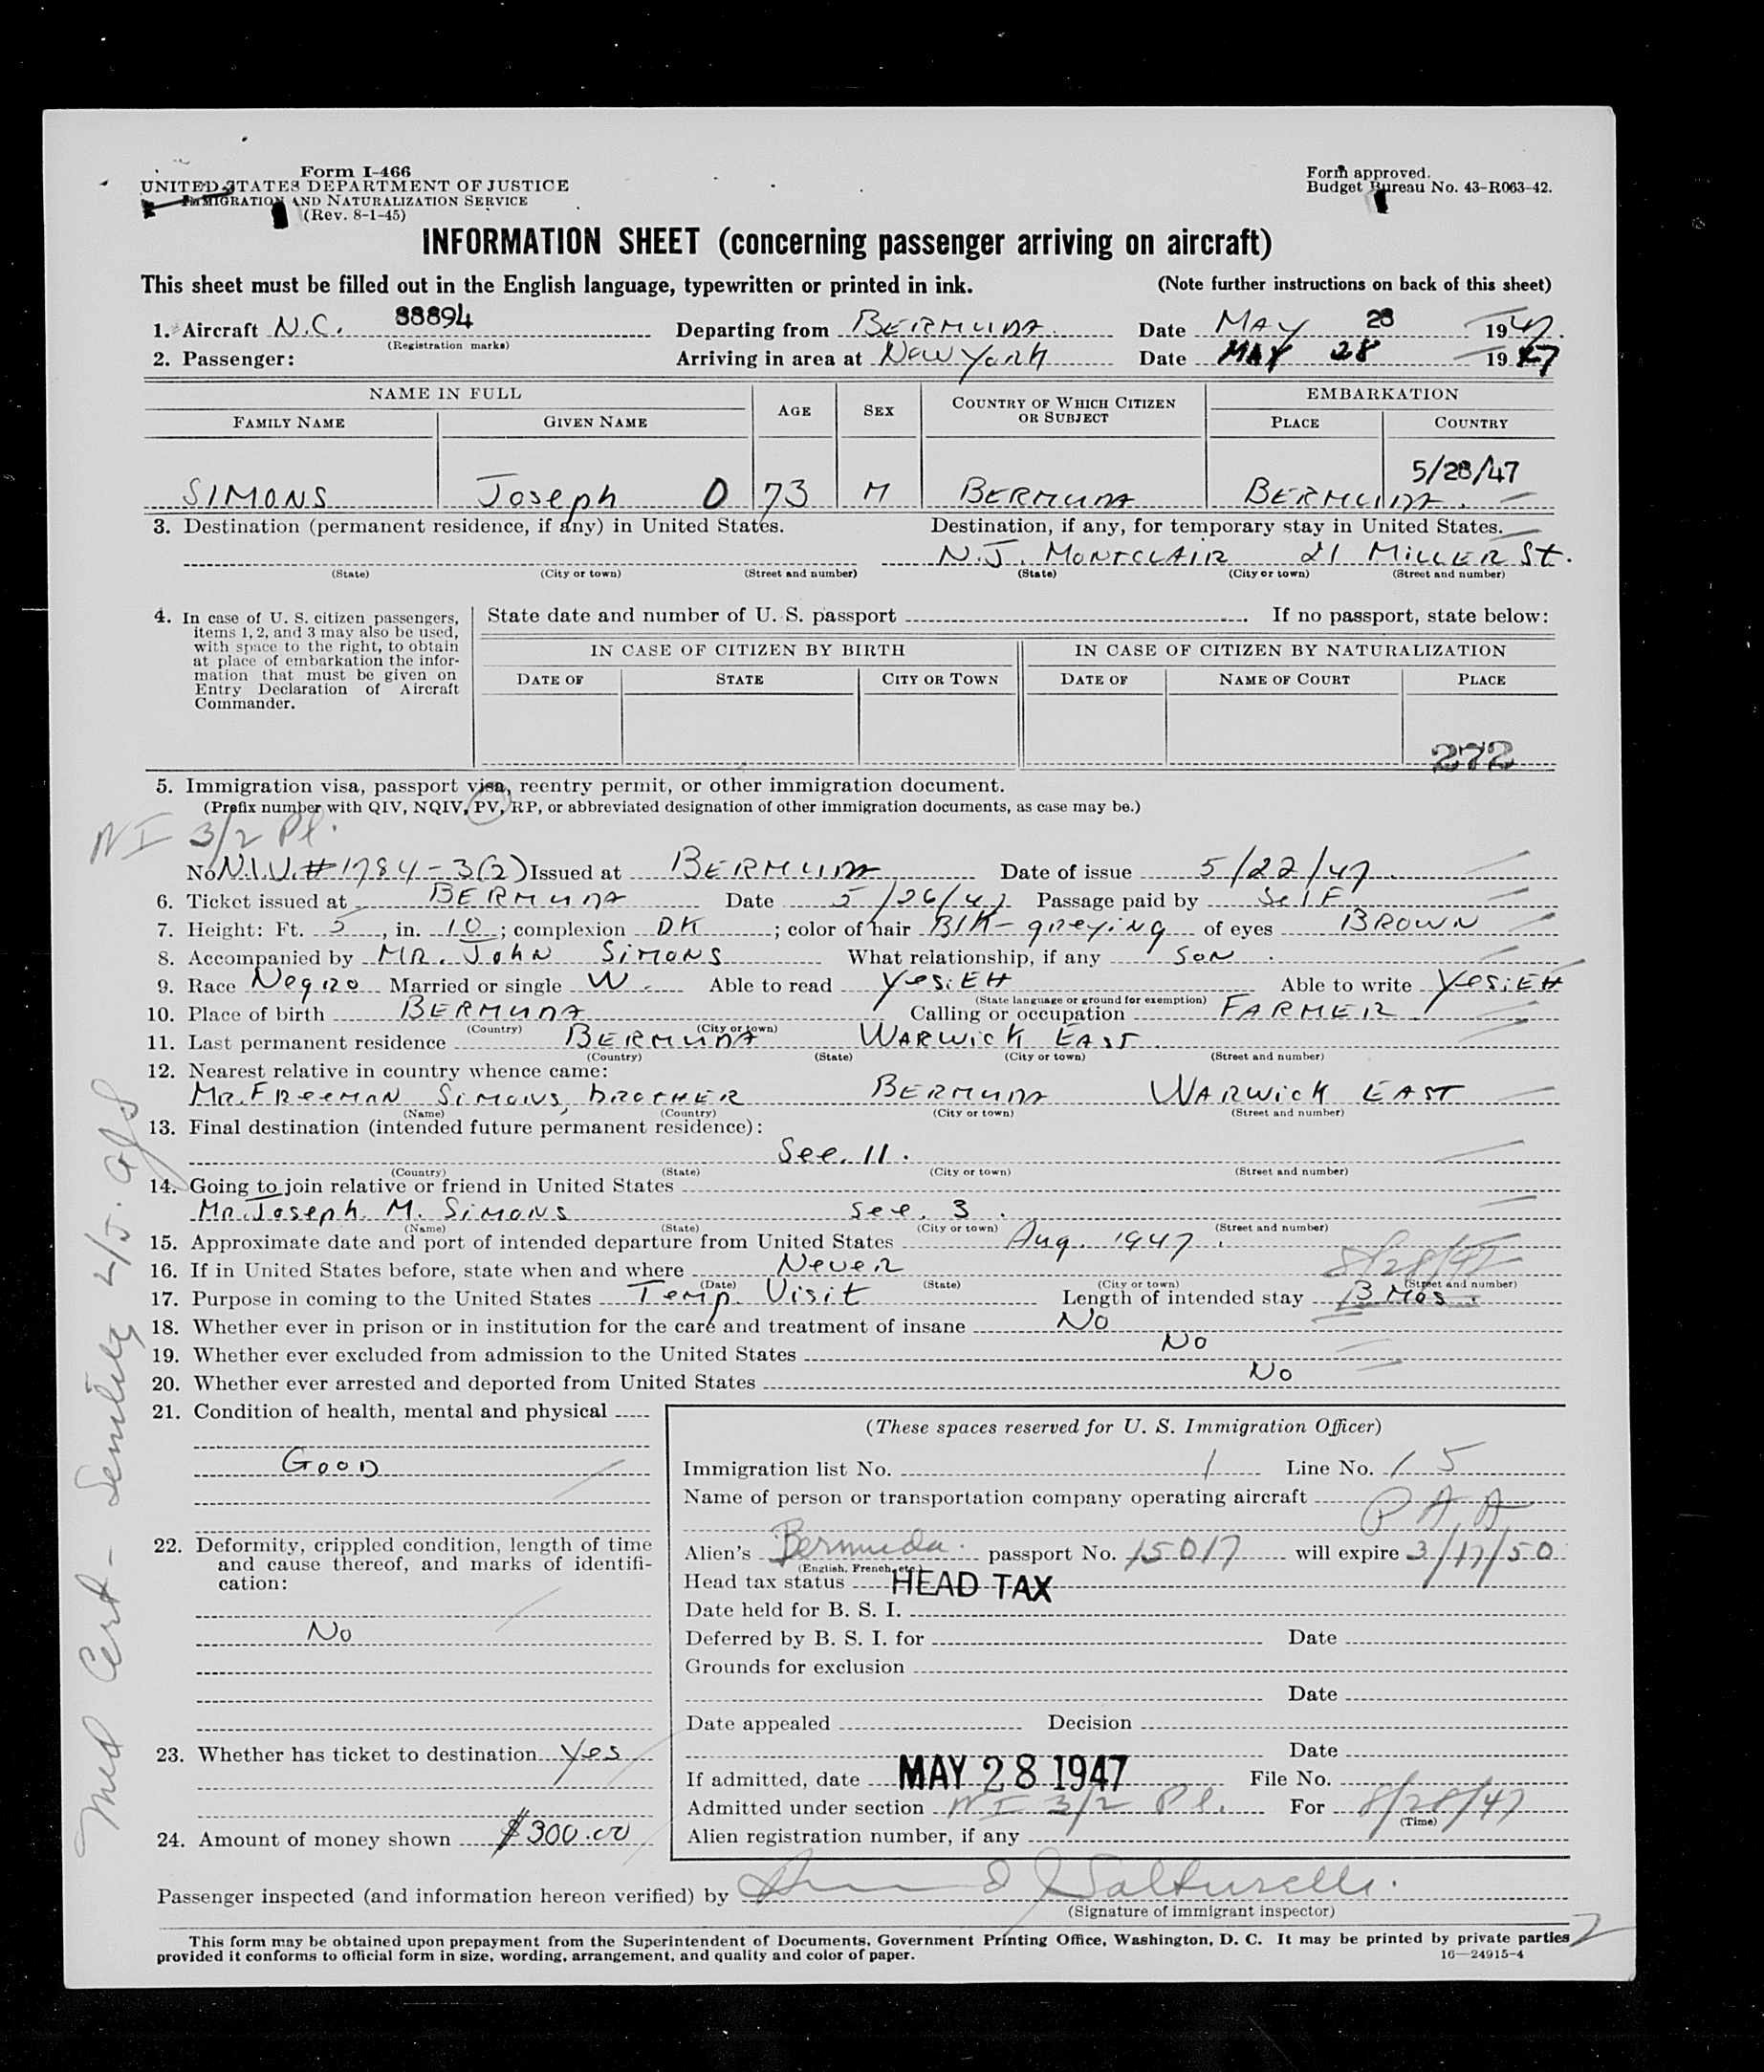 Form I-466
UNITED STATES DEPARTMENT OF JUSTICE
IMMIGRATION AND NATURALIZATION SERVICE
(Rev. 8-1-45)
Form approved.
Budget Bureau No. 43-R063-42.
INFORMATION SHEET (concerning passenger arriving on aircraft)
This sheet must be filled out in the English language, typewritten or printed in ink. (Note further instructions on back of this sheet)
1. Aircraft N.C. 88894 Departing from BERMUDA Date MAY 28 1947.
(Registration marks)
2. Passenger: Arriving in area at New York Date MAY 28 1947
NAME IN FULL AGE SEX COUNTRY OF WHICH CITIZEN OR SUBJECT EMBARKATION
FAMILY NAME GIVEN NAME PLACE COUNTRY
5/28/47
SIMONS Joseph O 73 M BERMUDA BERMUDA.
3. Destination (permanent residence, if any) in United States. Destination, if any, for temporary stay in United States.
N.J. MONTCLAIR 21 MILLER St.
(State) (City or town) (Street and number) (State) (City or town) (Street and number)
4. In case of U. S. citizen passengers, items 1, 2, and 3 may also be used, with space to the right, to obtain at place of embarkation the information that must be given on Entry Declaration of Aircraft Commander.
State date and number of U. S. passport If no passport, state below:
IN CASE OF CITIZEN BY BIRTH IN CASE OF CITIZEN BY NATURALIZATION
DATE OF STATE CITY OR TOWN DATE OF NAME OF COURT PLACE
272
5. Immigration visa, passport visa, reentry permit, or other immigration document.
(Prefix number with QIV, NQIV, PV, RP, or abbreviated designation of other immigration documents, as case may be.)
NI 3/2 Pl.
No. N.I.V.#1784-3(2) Issued at BERMUDA Date of issue 5/22/47.
6. Ticket issued at BERMUDA Date 5/26/47 Passage paid by Self
7. Height: Ft. 5, in. 10; complexion DK; color of hair Blk-greying of eyes BROWN
8. Accompanied by MR. John SIMONS What relationship, if any SON.
9. Race Negro Married or single W. Able to read Yes: EH Able to write Yes: EH
(State language or ground for exemption)
10. Place of birth BERMUDA Calling or occupation FARMER.
(Country) (City or town)
11. Last permanent residence BERMUDA WARWICK EAST.
(Country) (State) (City or town) (Street and number)
12. Nearest relative in country whence came:
MR. FREEMAN SIMONS, BROTHER BERMUDA WARWICK EAST
(Name) (Country) (City or town) (Street and number)
13. Final destination (intended future permanent residence):
See. 11.
(Country) (State) (City or town) (Street and number)
14. Going to join relative or friend in United States
Mr. Joseph. M. SIMONS see. 3.
(Name) (State) (City or town) (Street and number)
15. Approximate date and port of intended departure from United States Aug. 1947.
8/28/47
16. If in United States before, state when and where Never
(Date) (State) (City or town) (Street and number)
17. Purpose in coming to the United States Temp. Visit Length of intended stay 3 Mos.
18. Whether ever in prison or in institution for the care and treatment of insane No
19. Whether ever excluded from admission to the United States No
20. Whether ever arrested and deported from United States No
21. Condition of health, mental and physical
GOOD
22. Deformity, crippled condition, length of time and cause thereof, and marks of identification:
No
23. Whether has ticket to destination Yes
24. Amount of money shown $300.00
(These spaces reserved for U. S. Immigration Officer)
Immigration list No. 1 Line No. 15
Name of person or transportation company operating aircraft P A A
Alien's Bermuda. passport No. 15017 will expire 3/17/50
(English, French, etc.)
Head tax status HEAD TAX
Date held for B. S. I.
Deferred by B. S. I. for Date
Grounds for exclusion
Date
Date appealed Decision
Date
If admitted, date MAY 28 1947 File No.
Admitted under section NI 3/2 Pl. For 8/28/47
(Time)
Alien registration number, if any
Passenger inspected (and information hereon verified) by
(Signature of immigrant inspector)
This form may be obtained upon prepayment from the Superintendent of Documents, Government Printing Office, Washington, D. C. It may be printed by private parties
provided it conforms to official form in size, wording, arrangement, and quality and color of paper. 16—24915-4
2
Med Cert- Senility